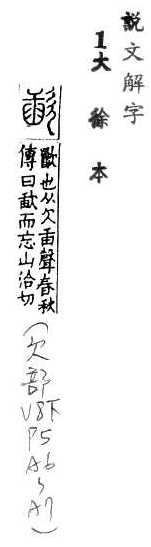 説文解字
1大徐本
歃
歠也从欠臿聲春秋
傳曰歃而忘山洽切
(欠部V8下P5A6~A7)